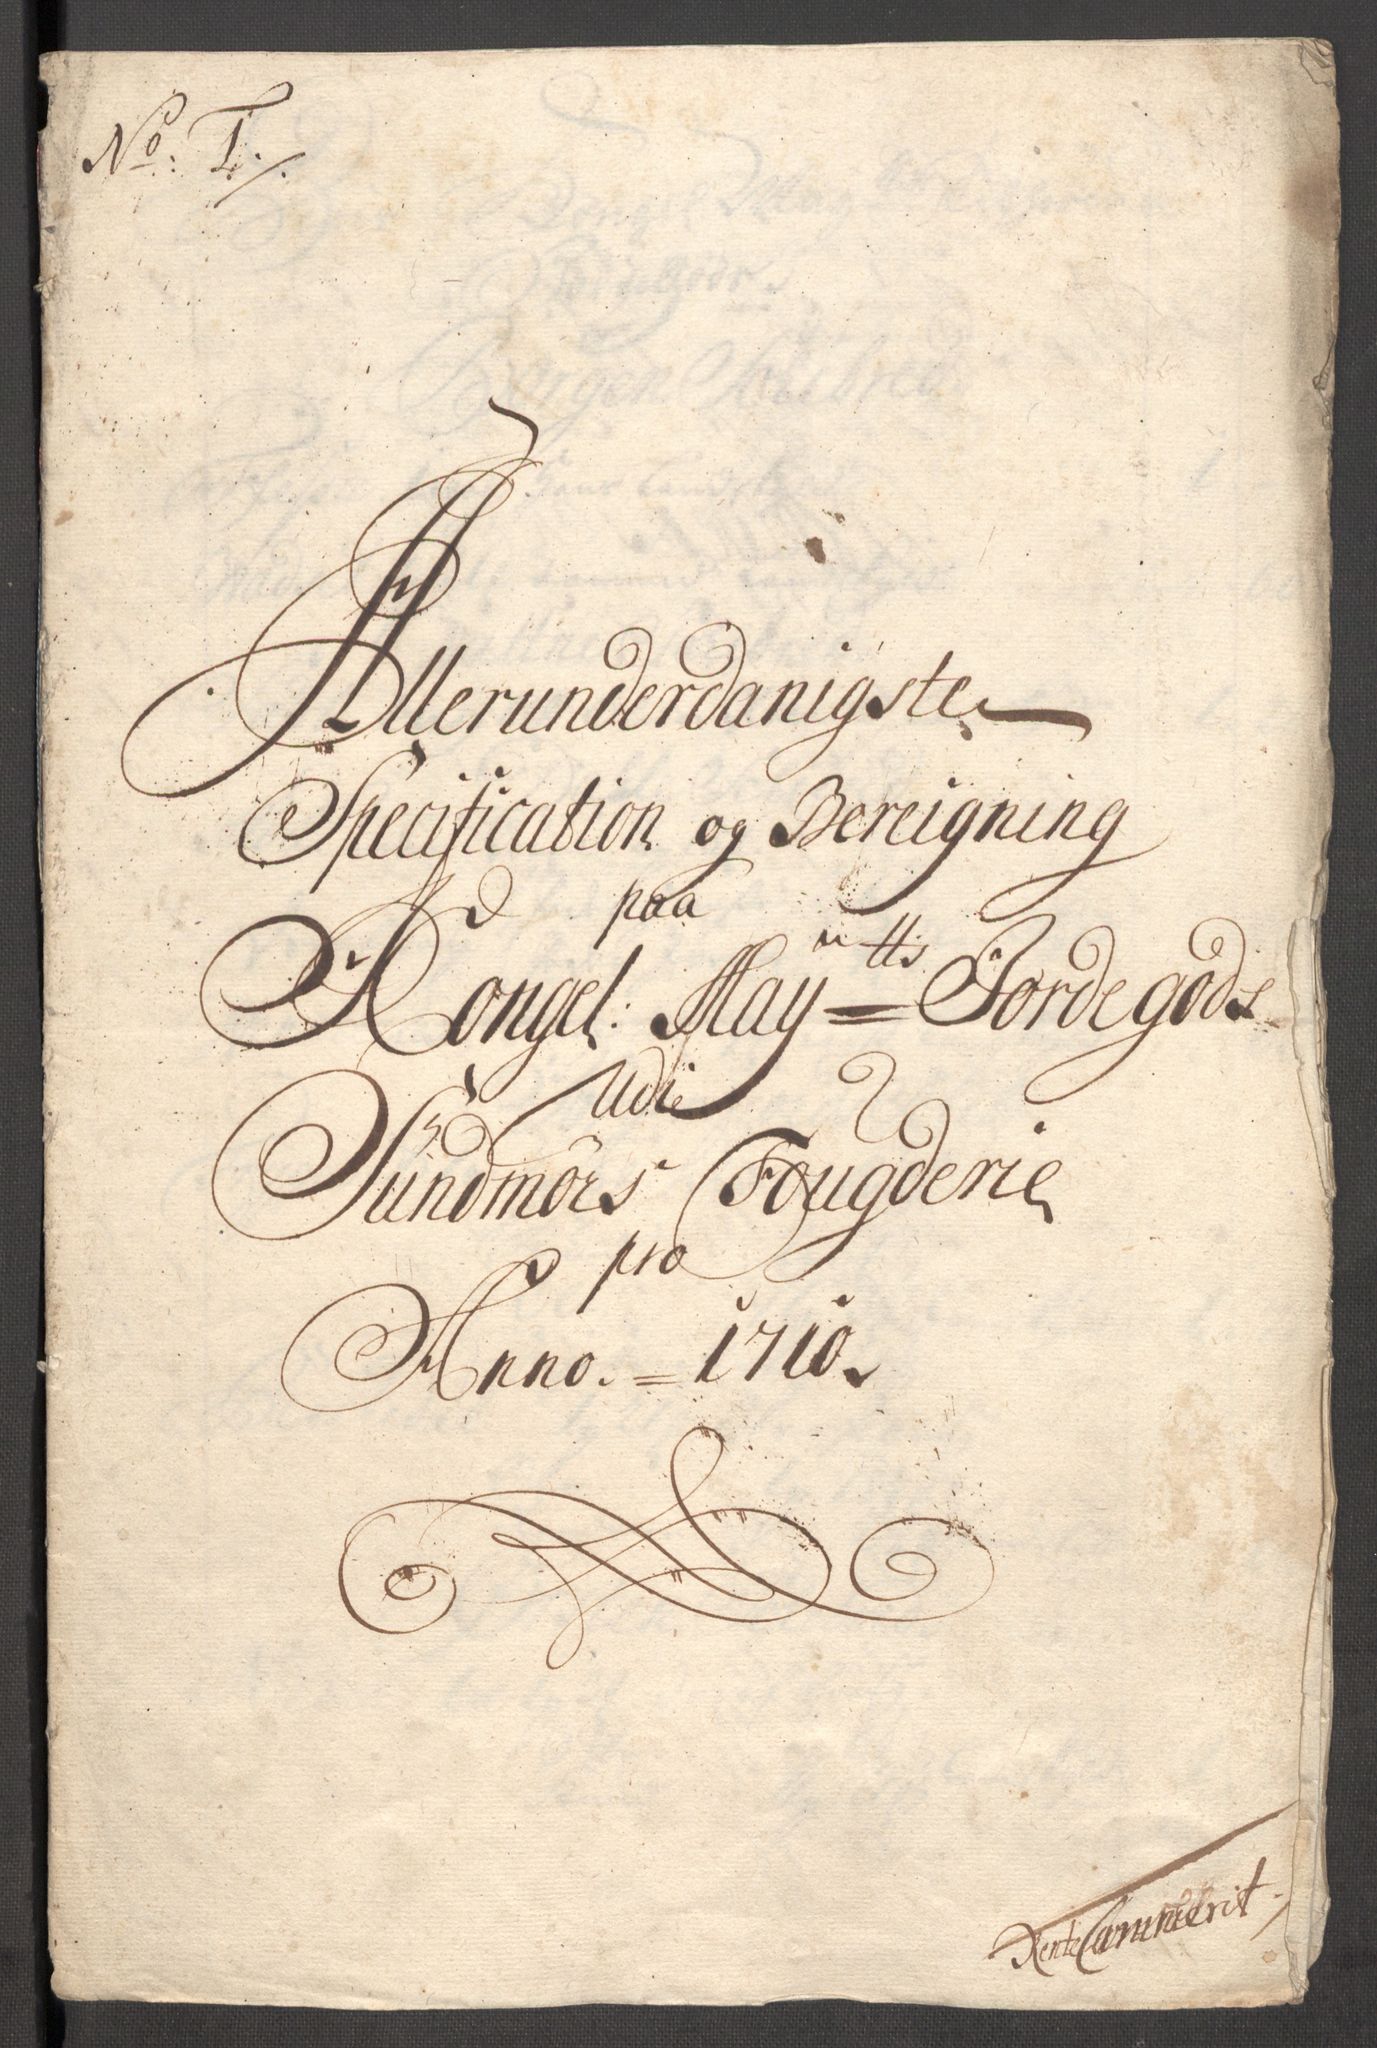 No: I.
Allerunderdanigste
Specification og Bereigning
paa
Kongel: May=tts Jordegods
Udi
Sundmörs Fougderie
pro
Anno. = 1710.
Rente Cammerit.